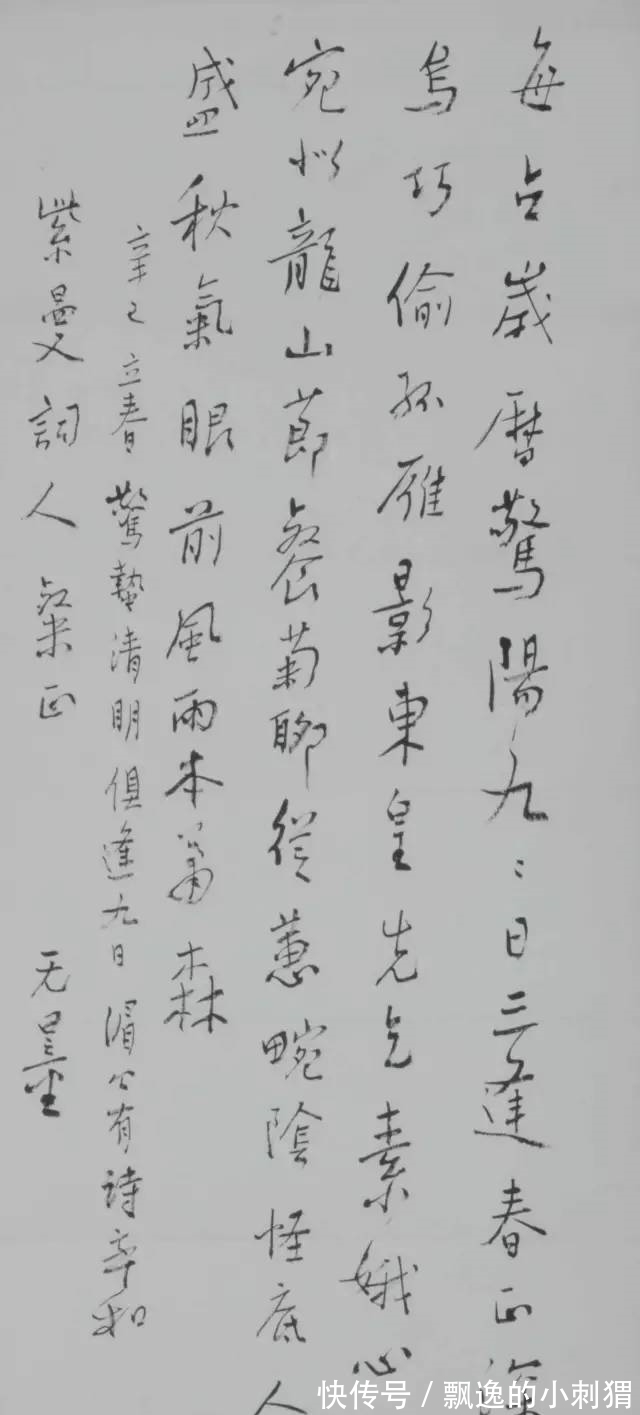 每占歲曆驚陽九〻日三逢春正深
烏巧偷孤雁影東皇先乞素娥心
宛似龍山節餐菊聊從蕙畹陰怪底人
盛秋氣眼前風雨本蕭森
辛巳立春驚蟄清明俱逢九日公有詩率和
紫曼詞人粲正 无量
快传号/飘逸的小刺猬